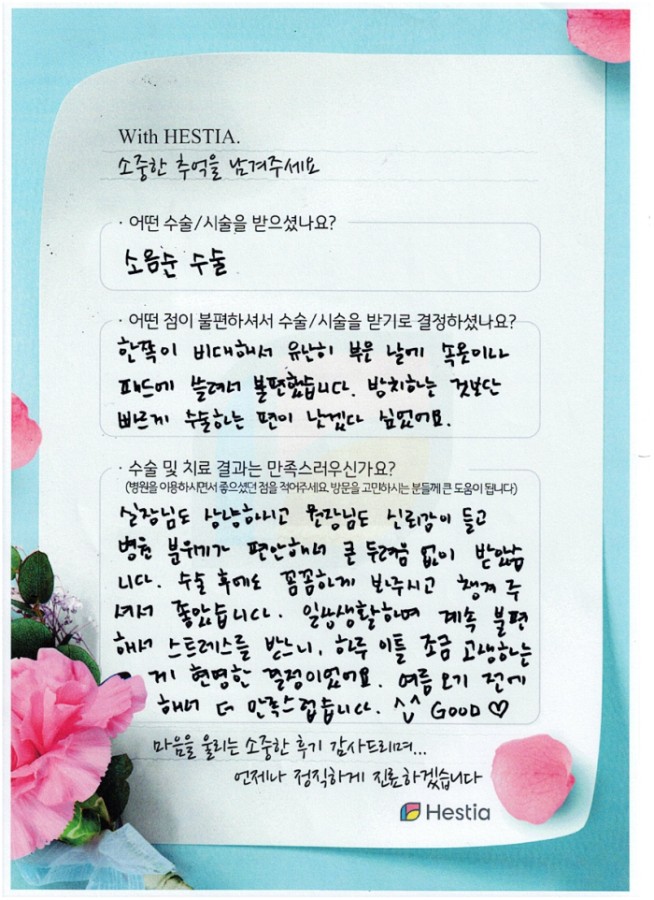 With HESTIA.
소중한 추억을 남겨주세요
· 어떤 수술/시술을 받으셨나요?
소음순 수술
· 어떤 점이 불편하셔서 수술/시술을 받기로 결정하셨나요?
한쪽이 비대해서 유난히 부은 날에 속옷이나
패드에 쓸려서 불편했습니다. 방치하는 것보단
빠르게 수술하는 편이 낫겠다 싶었어요.
· 수술 및 치료 결과는 만족스러우신가요?
(병원을 이용하시면서 좋으셨던 점을 적어주세요. 방문을 고민하시는 분들께 큰 도움이 됩니다)
실장님도 상냥하시고 원장님도 신뢰감이 들고
병원 분위기가 편안해서 큰 두려움 없이 받았습
니다. 수술 후에도 꼼꼼하게 봐주시고 챙겨 주
셔서 좋았습니다. 일상생활하며 계속 불편
해서 스트레스를 받느니, 하루 이틀 조금 고생하는
게 현명한 결정이었어요. 여름 오기 전에
해서 더 만족스럽습니다. ^^ GOOD ♡
마음을 울리는 소중한 후기 감사드리며...
언제나 정직하게 진료하겠습니다
Hestia